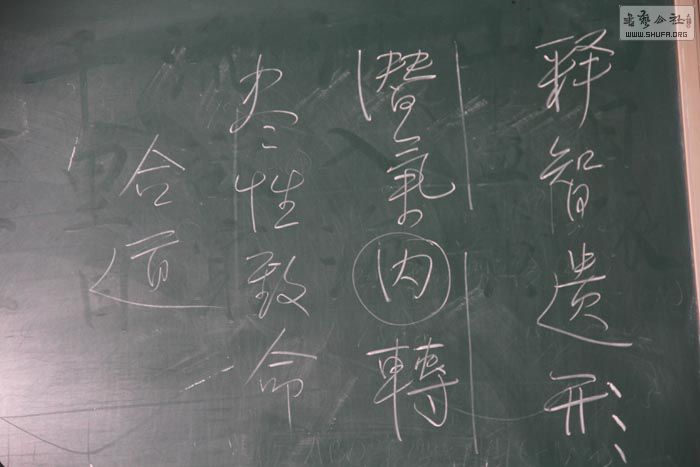 释智遗形
潜氣内轉
尽性致命
合道
書藝公社
WWW.SHUFA.ORG